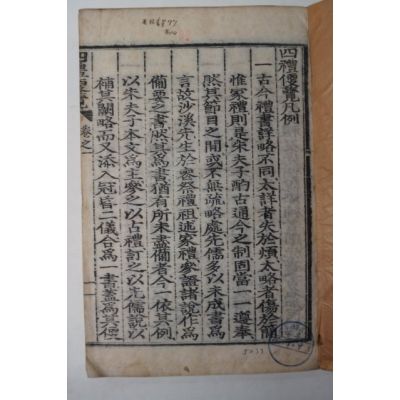 四禮便覽凡例
一古今禮書詳略不同太詳者失於煩太略者傷於簡
惟家禮則是朱夫子酌古通今之制固當一一遵奉
然其節目之間或不無疏略處先儒多以未成書爲
言故沙溪先生於喪祭禮祖述家禮參諸說作爲
備要之書然其爲書猶有所未盡備者今一依其例
以朱夫子本文爲主參之以古禮訂之以先儒說以
補其闕略而又添入冠昏二儀合爲一書蓋爲其便
四禮便覽 卷之
5033